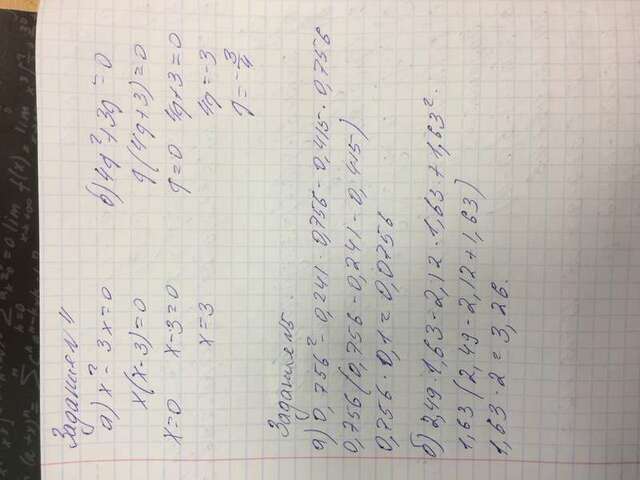 Задание №4
а) x² - 3x = 0
x(x-3) = 0
x=0 x-3=0
x=3
б) 4y² + 3y = 0
y(4y+3) = 0
y=0 4y+3=0
4y=-3
y=-3/4
Задание №5
а) 0,756² - 0,241 · 0,756 - 0,415 · 0,756
0,756(0,756 - 0,241 - 0,415)
0,756 · 0,1 = 0,0756
б) 2,49 · 1,63 - 2,12 · 1,63 + 1,63²
1,63(2,49 - 2,12 + 1,63)
1,63 · 2 = 3,26.